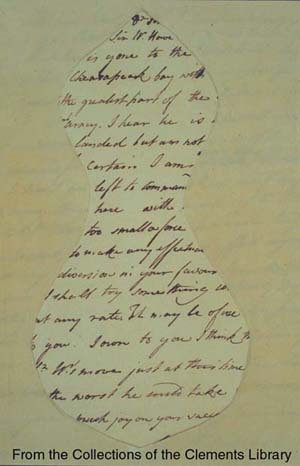 Sir W. Howe
is gone to the
Chesapeak bay with
the greatest part of the
army. I hear he is
landed but am not
certain. I am
left to command
here with
too small a force
to make any effectual
diversion in your favour
I shall try something
at any rate. It may be of use
to you. I own to you I think
Sr W's move just at this time
the worst he could take
much joy on your succe
From the Collections of the Clements Library